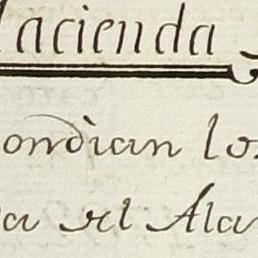 Hacienda
ondian los
a el Ala